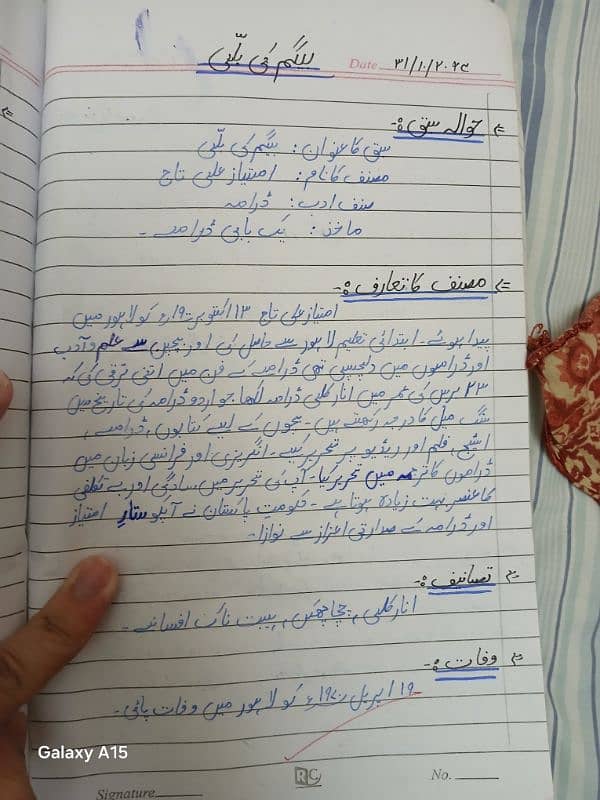 بیگم کی بلّی
Date ۳۱/۱۰/۲۰۲۴
حوالہ سبق :-
سبق کا عنوان : بیگم کی بلّی
مصنف کا نام : امتیاز علی تاج
صنف ادب : ڈرامہ
ماخذ : یک بابی ڈرامے -
مصنف کا تعارف :-
امتیاز علی تاج ۱۳ اکتوبر ۱۹۰۰ء کو لاہور میں
پیدا ہوئے - ابتدائی تعلیم لاہور سے حاصل کی اور بچپن سے علم و ادب
اور ڈراموں میں دلچسپی تھی ڈرامے کے فن میں اتنی ترقی کی کہ
۲۳ برس کی عمر میں انار کلی ڈرامہ لکھا. جو اردو ڈرامہ کی تاریخ میں
سنگ میل کا درجہ رکھتے ہیں - بچوں کے لیے کتابوں, ڈرامے,
اسٹیج, فلم اور ریڈیو پر تحریر کیے - انگریزی اور فرانسی زبان میں
ڈراموں کا ترجمہ میں تحریر کیا - آپ کی تحریر میں سادگی اور بے تکلفی
کا عنصر بہت زیادہ ہوتا ہے - حکومت پاکستان نے آپکو ستارِ امتیاز
اور ڈرامہ کے صدارتی اعزاز سے نوازا -
تصانیف :-
انار کلی, چچا چھکن, ہیبت ناک افسانے -
وفات :-
۱۹ اپریل ۱۹۷۰ء کو لاہور میں وفات پائی -
Galaxy A15
Signature
RC
No.